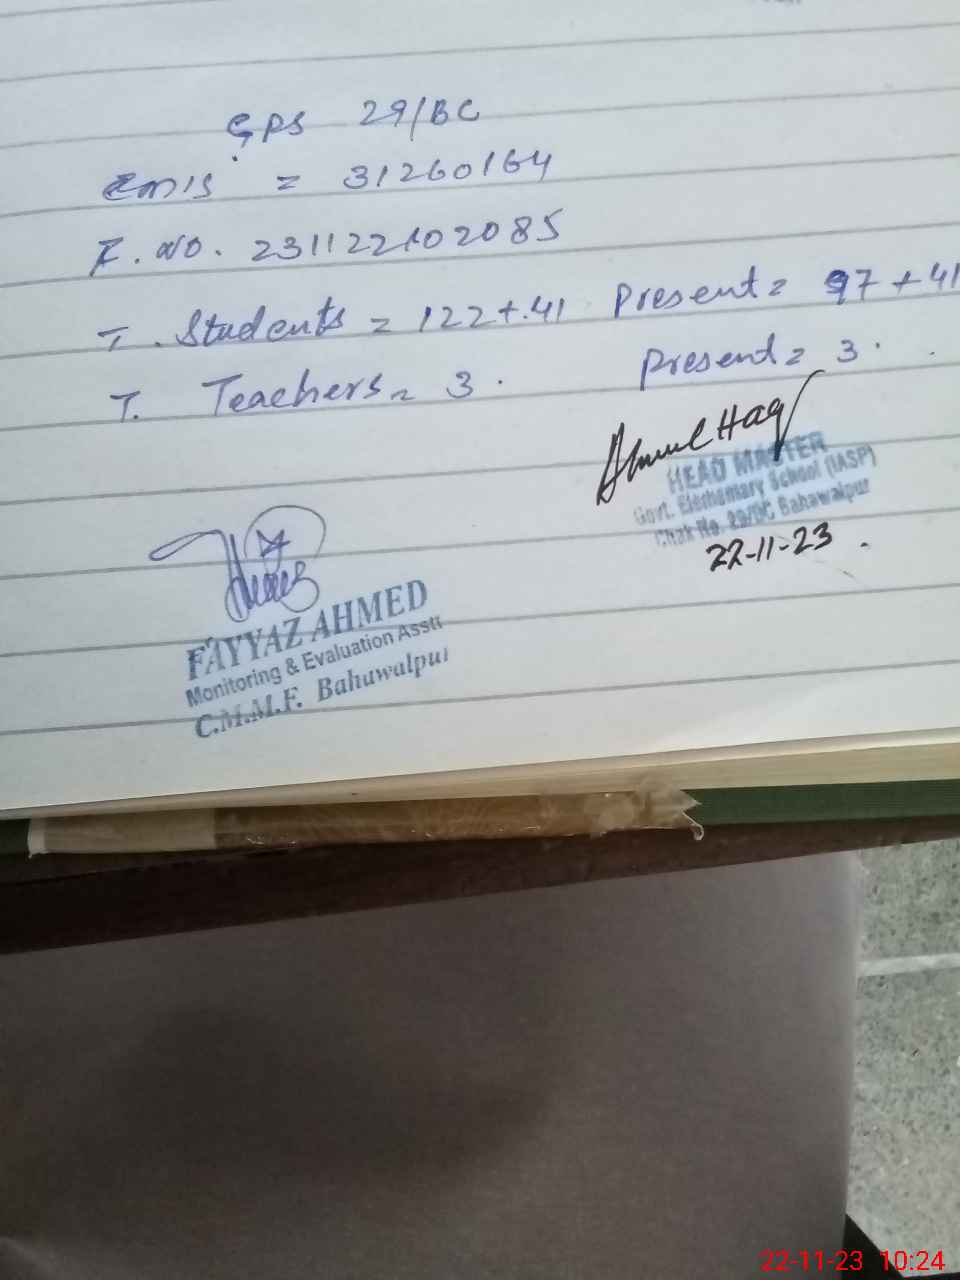 GPS 29/BC
Emis = 31260164
F. No. 231122102085
T. Students = 122+41 Present = 97+41
T. Teachers = 3. Present = 3.
HEAD MASTER
Govt. Elementary School (IASP)
Chak No. 29/BC Bahawalpur
22-11-23.
FAYYAZ AHMED
Monitoring & Evaluation Asstt
C.M.M.F. Bahawalpur
22-11-23 10:24